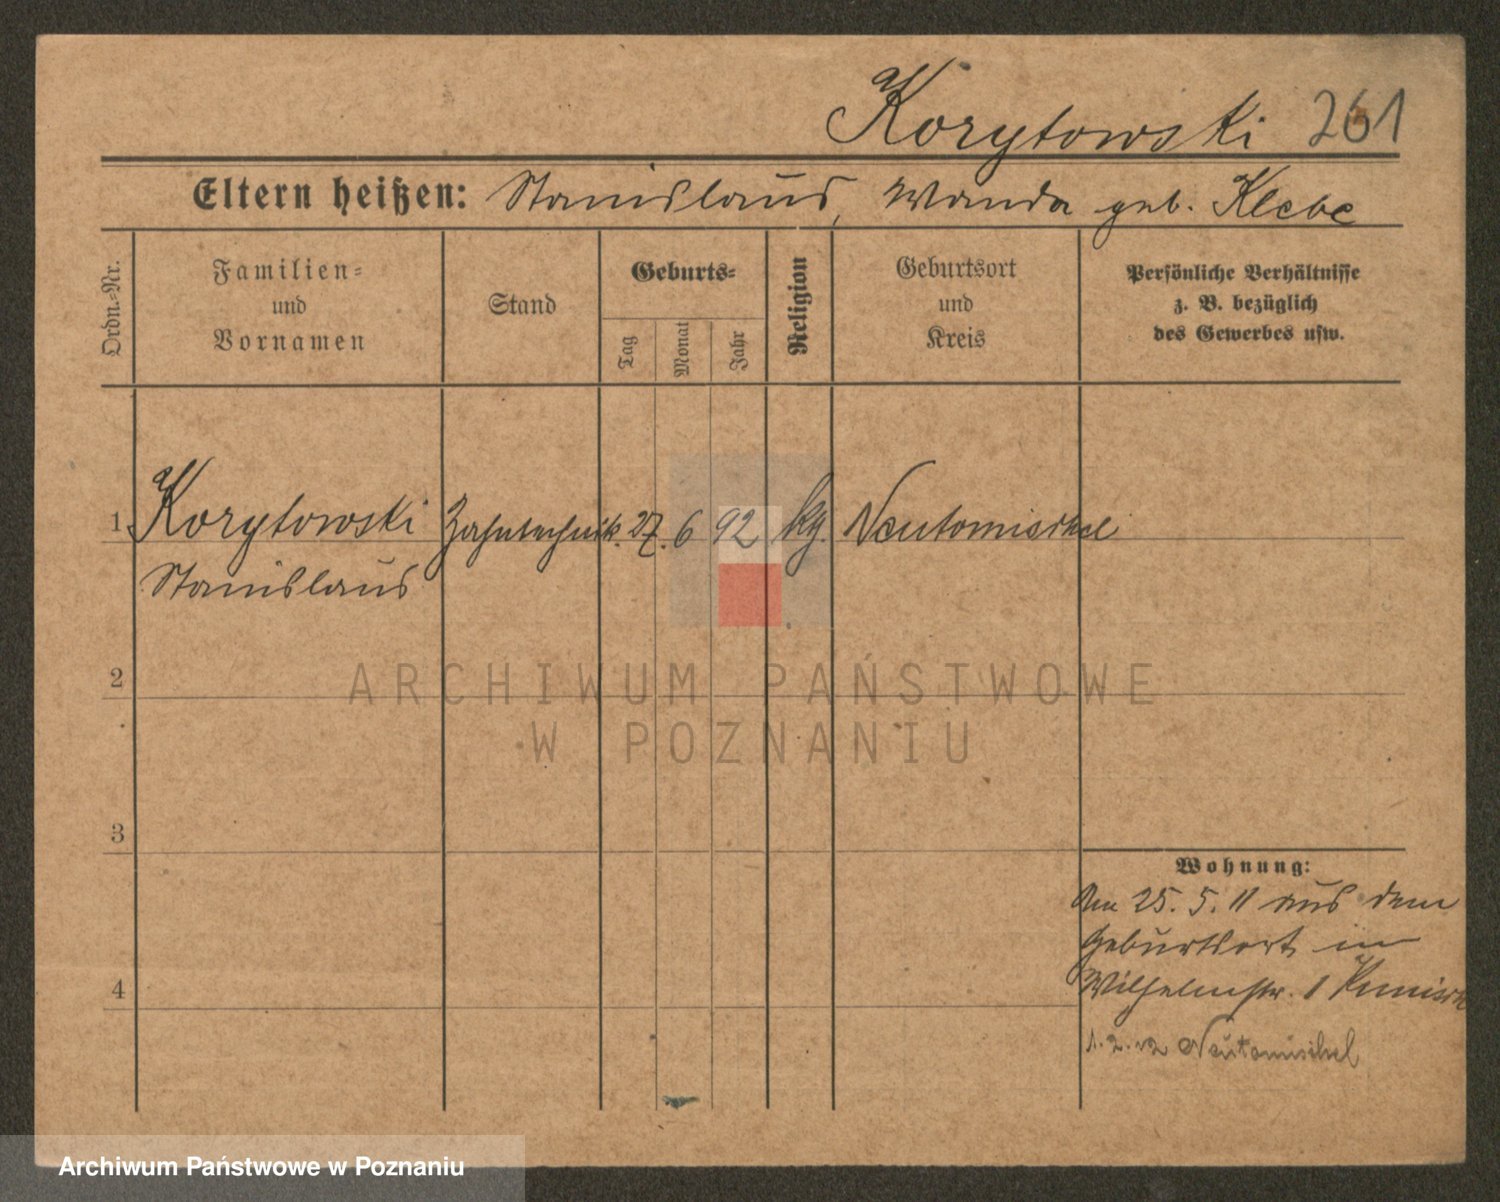 Korytowski 261
Eltern heißen: Stanislaus, Wanda geb. Klebe
Ordn.-Nr.
Familien-
und
Vornamen
Stand
Geburts-
Tag
Monat
Jahr
Religion
Geburtsort
und
Kreis
Persönliche Verhältnisse
z. B. bezüglich
des Gewerbes usw.
1 Korytowski Zahntechnik. 27. 6 92 kg. Neutomischel
Stanislaus
2
ARCHIWUM PAŃSTWOWE
W POZNANIU
3
Wohnung:
Am 25. 5. 11 aus dem
Geburtsort in
4 Wilhelmstr. 1
1. 2. 12 Neutomischel
Archiwum Państwowe w Poznaniu